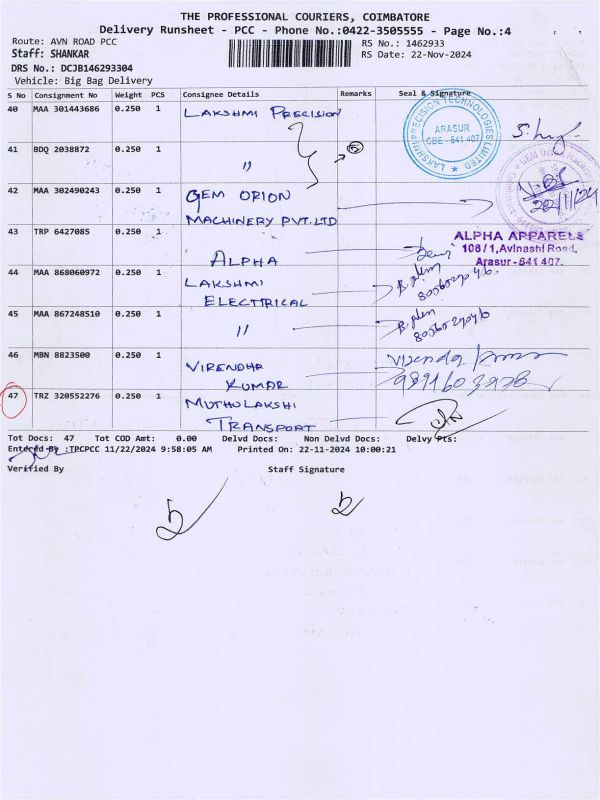 THE PROFESSIONAL COURIERS, COIMBATORE
Delivery Runsheet - PCC - Phone No.:0422-3505555 - Page No.:4
Route: AVN ROAD PCC
RS No.: 1462933
Staff: SHANKAR
RS Date: 22-Nov-2024
DRS No.: DCJB146293304
Vehicle: Big Bag Delivery
S No Consignment No Weight PCS Consignee Details Remarks Seal & Signature
40 MAA 301443686 0.250 1 LAKSHMI PRECISION
LAKSHMI PRECISION TECHNOLOGIES LIMITED
ARASUR
CBE - 641 407.
41 BDQ 2038872 0.250 1 "
42 MAA 302490243 0.250 1 GEM ORION
MACHINERY PVT.LTD
22/11/24
43 TRP 6427085 0.250 1
ALPHA
ALPHA APPARELS
106/1,Avinashi Road,
Arasur - 641 407.
44 MAA 868060972 0.250 1 LAKSHMI
ELECTRICAL
45 MAA 867248510 0.250 1 "
46 MBN 8823500 0.250 1 VIRENDHA
KUMAR
Virendra Kumar
47 TRZ 320552276 0.250 1 MUTHULAKSHI
TRANSPORT
Tot Docs: 47 Tot COD Amt: 0.00 Delvd Docs: Non Delvd Docs: Delvy Pts:
Entered By :TPCPCC 11/22/2024 9:58:05 AM Printed On: 22-11-2024 10:00:21
Verified By Staff Signature